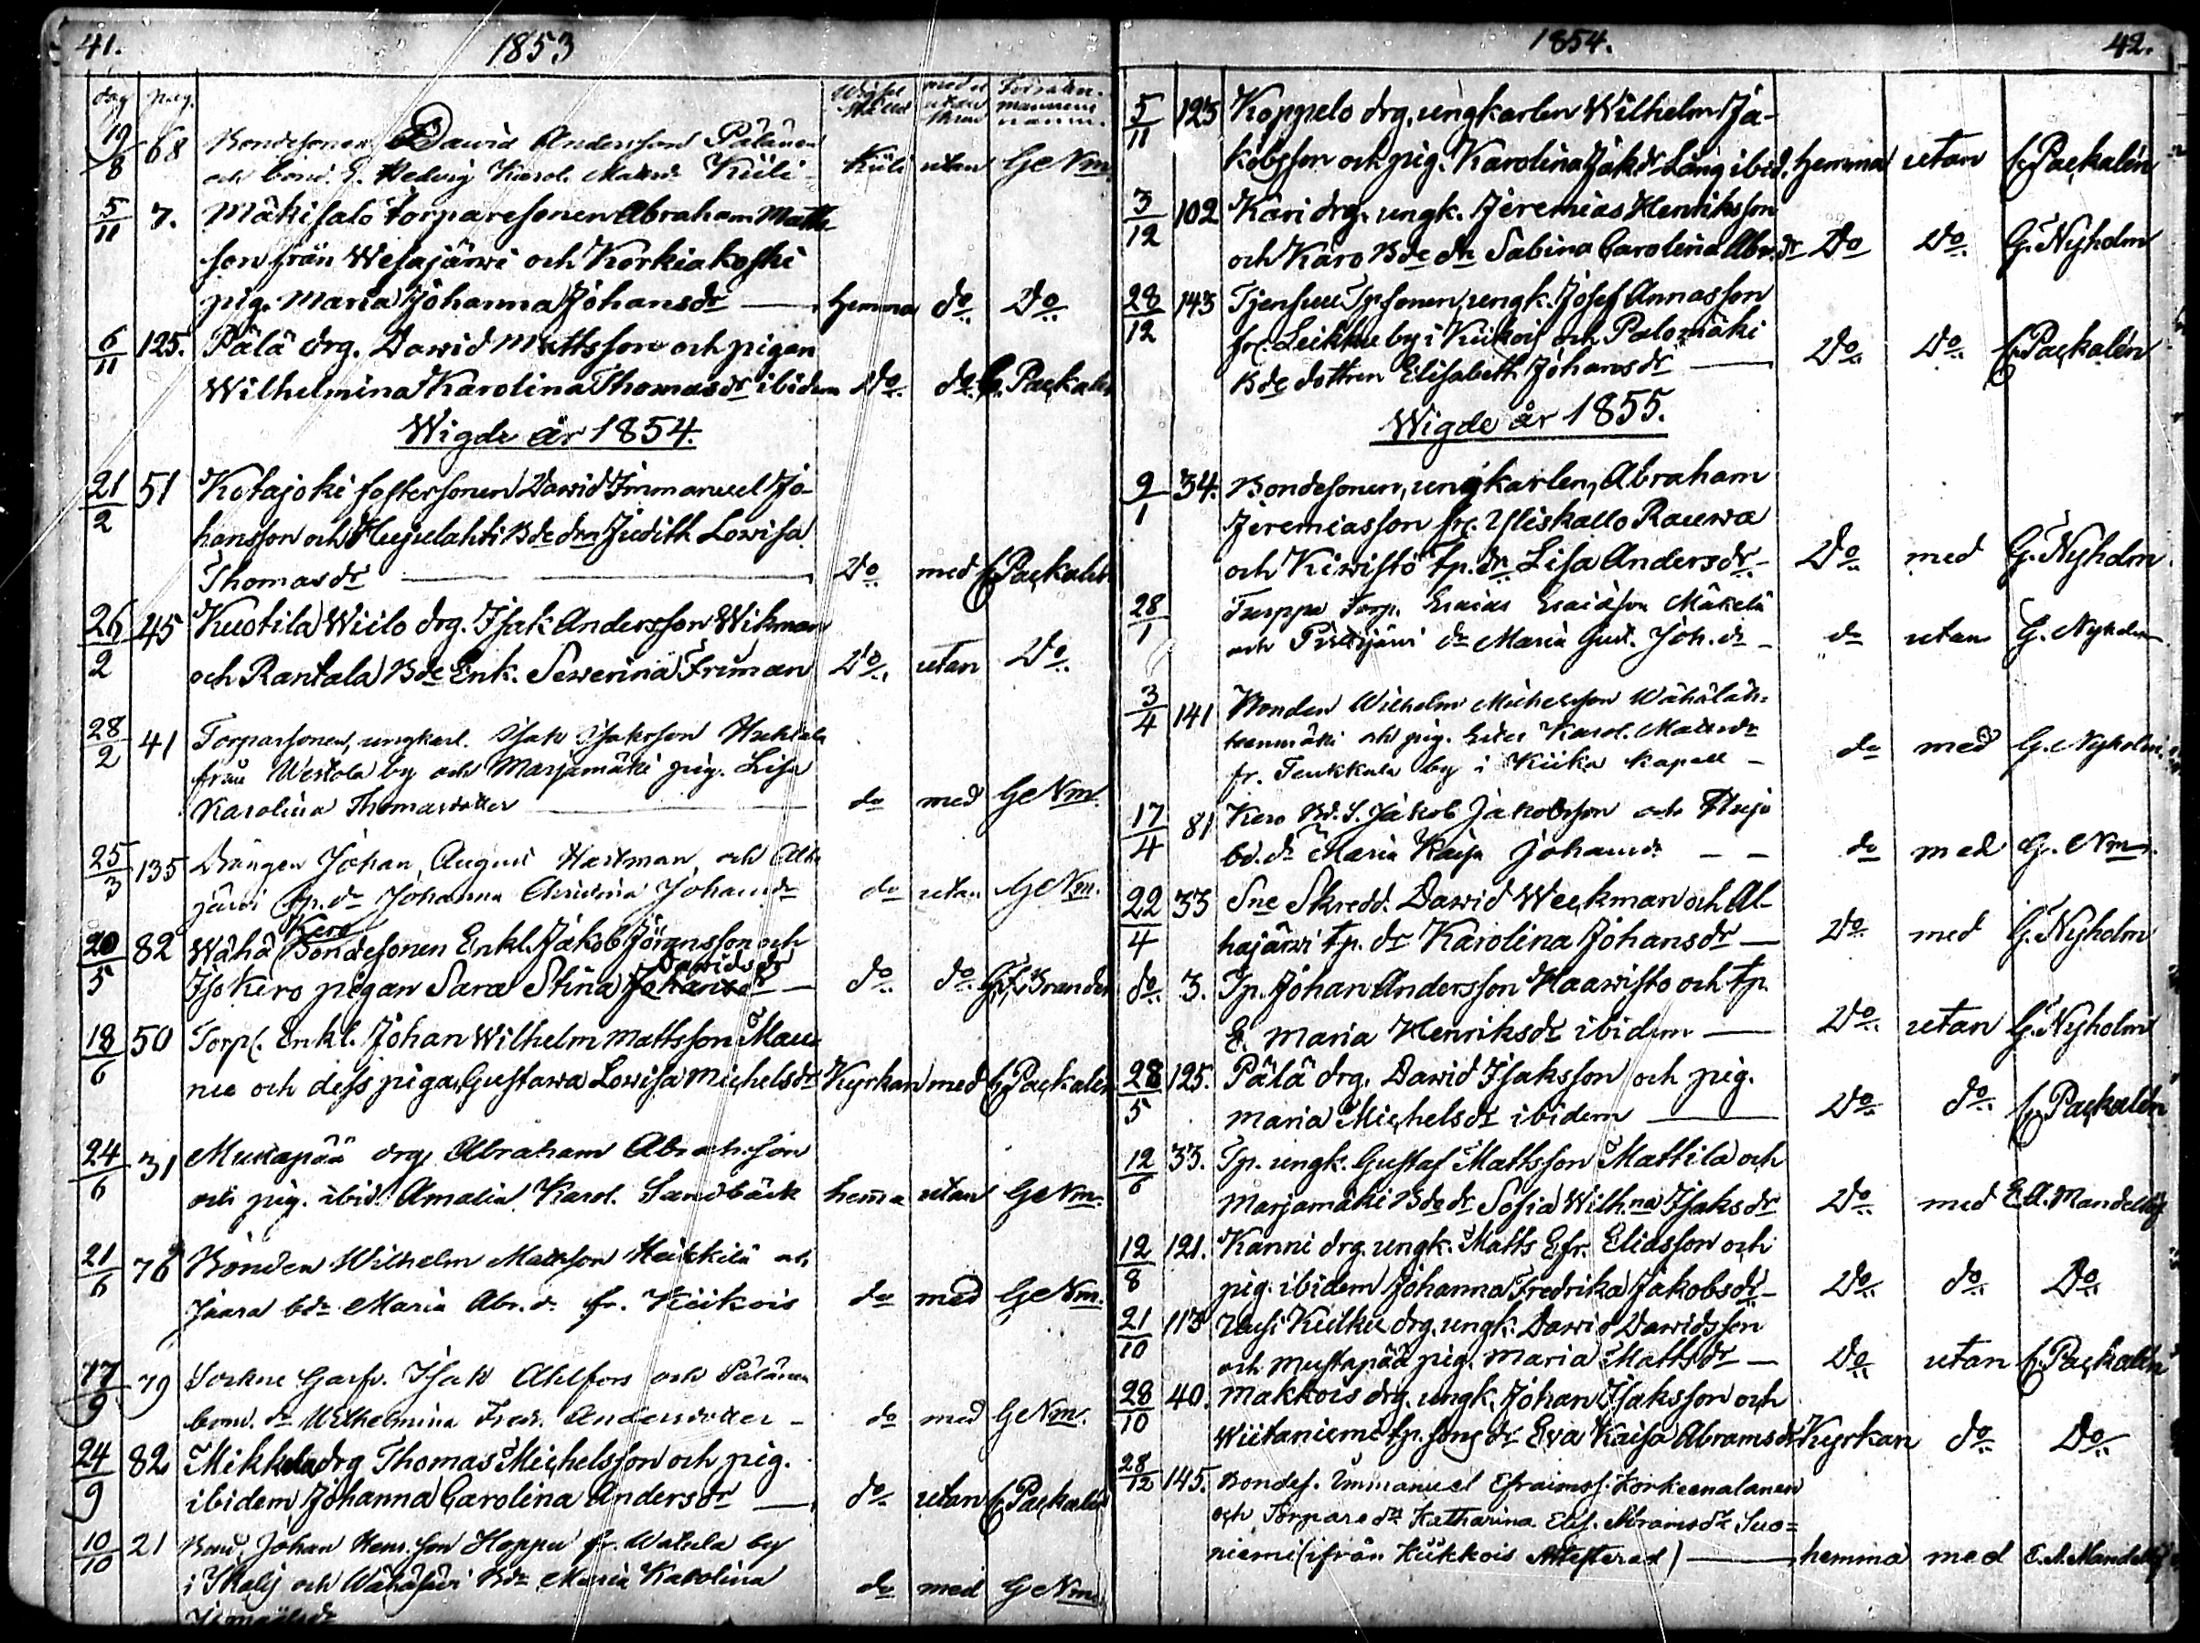 41.
1853
dag pag. Wigsel med el utan Förrätn. mannens namn.
19/8 68 Bondesonen David Andersson Pälänen
och bond. Hedvig Karol. Mattsdr Kiili Kiili utan GeNm.
5/11 7. Mäkisalo torparesonen Abraham Matts-
son från Wesajärwi och Korkiakoski
pig. Maria Johanna Johansdr hemma do Do
6/11 125. Pälä drg. Dawid Mattsson och pigan
Wilhelmina Karolina Thomasdr ibidem Do. do. C. Packalen
Wigde år 1854.
21/2 51 Kotajoki fostersonen Dawid Immanuel Jo-
hansson och Hujulahti Bde drn Judith Lowisa
Thomasdr Do med C. Packalen
26/2 45 Kuotila Wiilo drg. Isak Andersson Wikman
och Rantala Bde Enk. Sewerina Friman Do. utan Do.
28/2 41 Torparsonen, ungkarl. Isak Isaksson
från Westola by och Marjamäki pig. Lisa
Karolina Thomasdotter do med GeNm.
25/3 135 Drängen Johan August Hartman och Alha
järvi tp. dr Johanna Christina Johansdr do utan GeNm.
Kero
20/5 82 Wähä Bondesonen Enkl. Jakob Göransson och
Dawidsdr
Iso Kero pigan Sara Stina Johansdr do do. Brander
18/6 50 Torp. Enkl. Johan Wilhelm Mattsson Mau-
nu och dess piga, Gustawa Lowisa Michelsdr Kyrkan med C. Packalen
24/6 31 Mustapää drg. Abraham Abrahsson
och pig. ibid. Amalia Karol. Sandbäck hemma utan GeNm.
21/6 76 Bonden Wilhelm Mattsson Heikkilä och
Jaara bdr Maria Abr. dr fr. Kiikois do med GeNm.
17/9 79 Sockne Garfv. Isak Ahlfors och Pälänen
bond. dr Wilhelmina Fred. Andersdotter do med GeNm.
24/9 82 Mikkola drg Thomas Michelsson och pig.
ibidem Johanna Carolina Andersdr do utan C. Packalén
10/10 21 Bond. Johan Hens. son Hoppu fr. Watula by
i Ikalis och Wähäsuvi Bdr Maria Karolina do med GeNm.
Ismaelsdr
1854. 42.
5/11 123 Koppelo drg. ungkarlen Wilhelm Ja-
kobsson och pig. Karolina Jakdr Lång ibid. hemma utan C. Packalén
3/12 102 Kari drg. ungk. Jeremias Henriksson
och Karo Bde dr Sabina Carolina Abr. dr Do Do. G. Nyholm
28/12 143 Tjensuu Tp sonen, ungk. Josef Annasson
fr. Leikku by i Kiikois och Palomäki
Bde dottren Elisabeth Johansdr Do. Do. C. Packalén
Wigde år 1855.
9/1 34. Bondesonen, ungkarlen, Abraham
Jeremiasson fr. Yliskallo Rauwa
och Kiwistö tp. dr Lisa Andersdr Do. med G. Nyholm
28/1 Torp. Esaias Esaiason Mäkelä
och dr Maria Gust. Joh. dr do utan G. Nyholm
3/4 141 Bonden Wilhelm Michelsson Wähäläh-
teenmäki och pig. Karol. Mattsdr
fr. Teukkala by i Kiika kapell do med G. Nyholm.
17/4 81 Kero Bd. S. Jakob Jakobsson och Huju
bd. dr Maria Kaisa Johansdr do med G. Nm.
22/4 33 Sne Skredd. Dawid Weckman och Al-
hajärwi tp. dr Karolina Johansdr Do med G. Nyholm
do 3. Tp. Johan Andersson Haawisto och tp.
E. Maria Henriksdr ibidem Do. utan G. Nyholm
28/5 125. Pälä drg. Dawid Isaksson och pig.
Maria Michelsdr ibidem Do. do. C. Packalén
12/6 33. Tp. ungk. Gustaf Mattsson Mattila och
Marjamäki Bde dr Sofia Wilh.na Isaksdr Do. med E. A. Mandellöf
12/8 121. Kanni drg. ungk. Matts Efr. Eliasson och
pig. ibidem Johanna Fredrika Jakobsdr Do. do. Do.
21/10 113 Uusi Kulku drg. ungk. Dawid Dawidsson
och Mustapää pig. Maria Mattsdr Do. utan C. Packalén
28/10 40. Makkois drg. ungk. Johan Isaksson och
Wiitaniemi tp. sons dr Eva Kaisa Abramsdr Kyrkan do Do
28/12 145. Bondes. Immanuel Efraimss. Korkeenalanen
och Torpare dr Katharina Elis. Abramsdr Suo=
niemi (ifrån Kiikkois Attesterad) hemma med E. A. Mandellöf